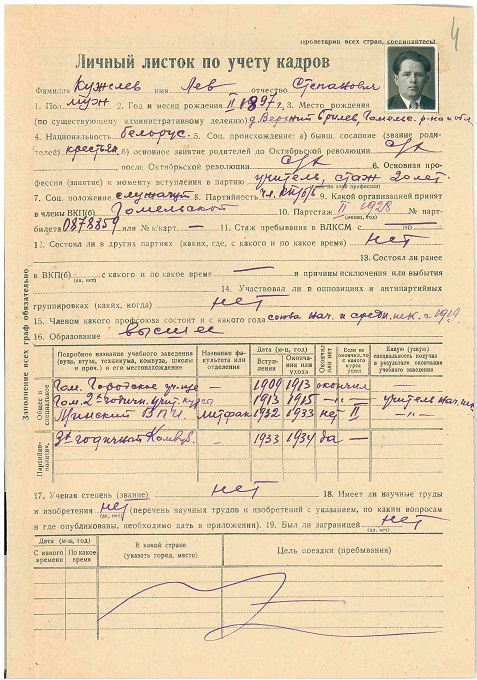 Пролетарии всех стран, соединяйтесь!
4
Личный листок по учету кадров
Фамилия имя Лев отчество Степанович
1. Пол муж 2. Год и месяц рождения II 1897 г. 3. Место рождения
(по существующему административному делению) д. Верхний
4. Национальность белорус. 5. Соц. происхождение: а) бывш. сословие (звание родителей)
крестьян. б) основное занятие родителей до Октябрьской революции с/х
, после Октябрьской революции с/х 6. Основная профессия
(занятие) к моменту вступления в партию учитель, стаж 20 лет.
7. Соц. положение служащий 8. Партийность чл. КП(б)Б 9. Какой организацией принят
в члены ВКП(б) Гомельской 10. Партстаж II 1928 № партбилета
0878859 или № к/карт — 11. Стаж пребывания в ВЛКСМ с — по —
12. Состоял ли в других партиях (каких, где, с какого и по какое время) нет
13. Состоял ли ранее
в ВКП(б) (да, нет) с какого и по какое время — и причины исключения или выбытия
14. Участвовал ли в оппозициях и антипартийных
группировках (каких, когда) нет
15. Членом какого профсоюза состоит и с какого года союза нач. и средн. шк. с 1919 г.
16. Образование высшее
Заполнение всех граф обязательно
Подробное название учебного заведения (вуза, втуза, техникума, комвуза, школы и проч.) и его местонахождение
Название факультета или отделения
Дата (м-ц, год)
Вступления
Окончания или ухода
Окончил или нет
Если не окончил, то с какого курса ушел
Какую (узкую) специальность получил в результате окончания учебного заведения
Общее и специальное
Гом. Городское уч-ще — 1909 1913 окончил — —
Гом. 2х годичн. учит. курсы 1913 1915 —„— — учитель нач. шк.
Минский ВПИ литфак 1932 1933 нет II —„—
Партийно-политич.
2х годичный Комвуз. — 1933 1934 да —
17. Ученая степень (звание) нет 18. Имеет ли научные труды
и изобретения нет (перечень научных трудов и изобретений с указанием, по каким вопросам
(да, нет)
и где опубликованы, необходимо дать в приложении). 19. Был ли заграницей нет
(да, нет)
Дата (м-ц, год)
С какого времени
По какое время
В какой стране (указать город, место)
Цель поездки (пребывания)